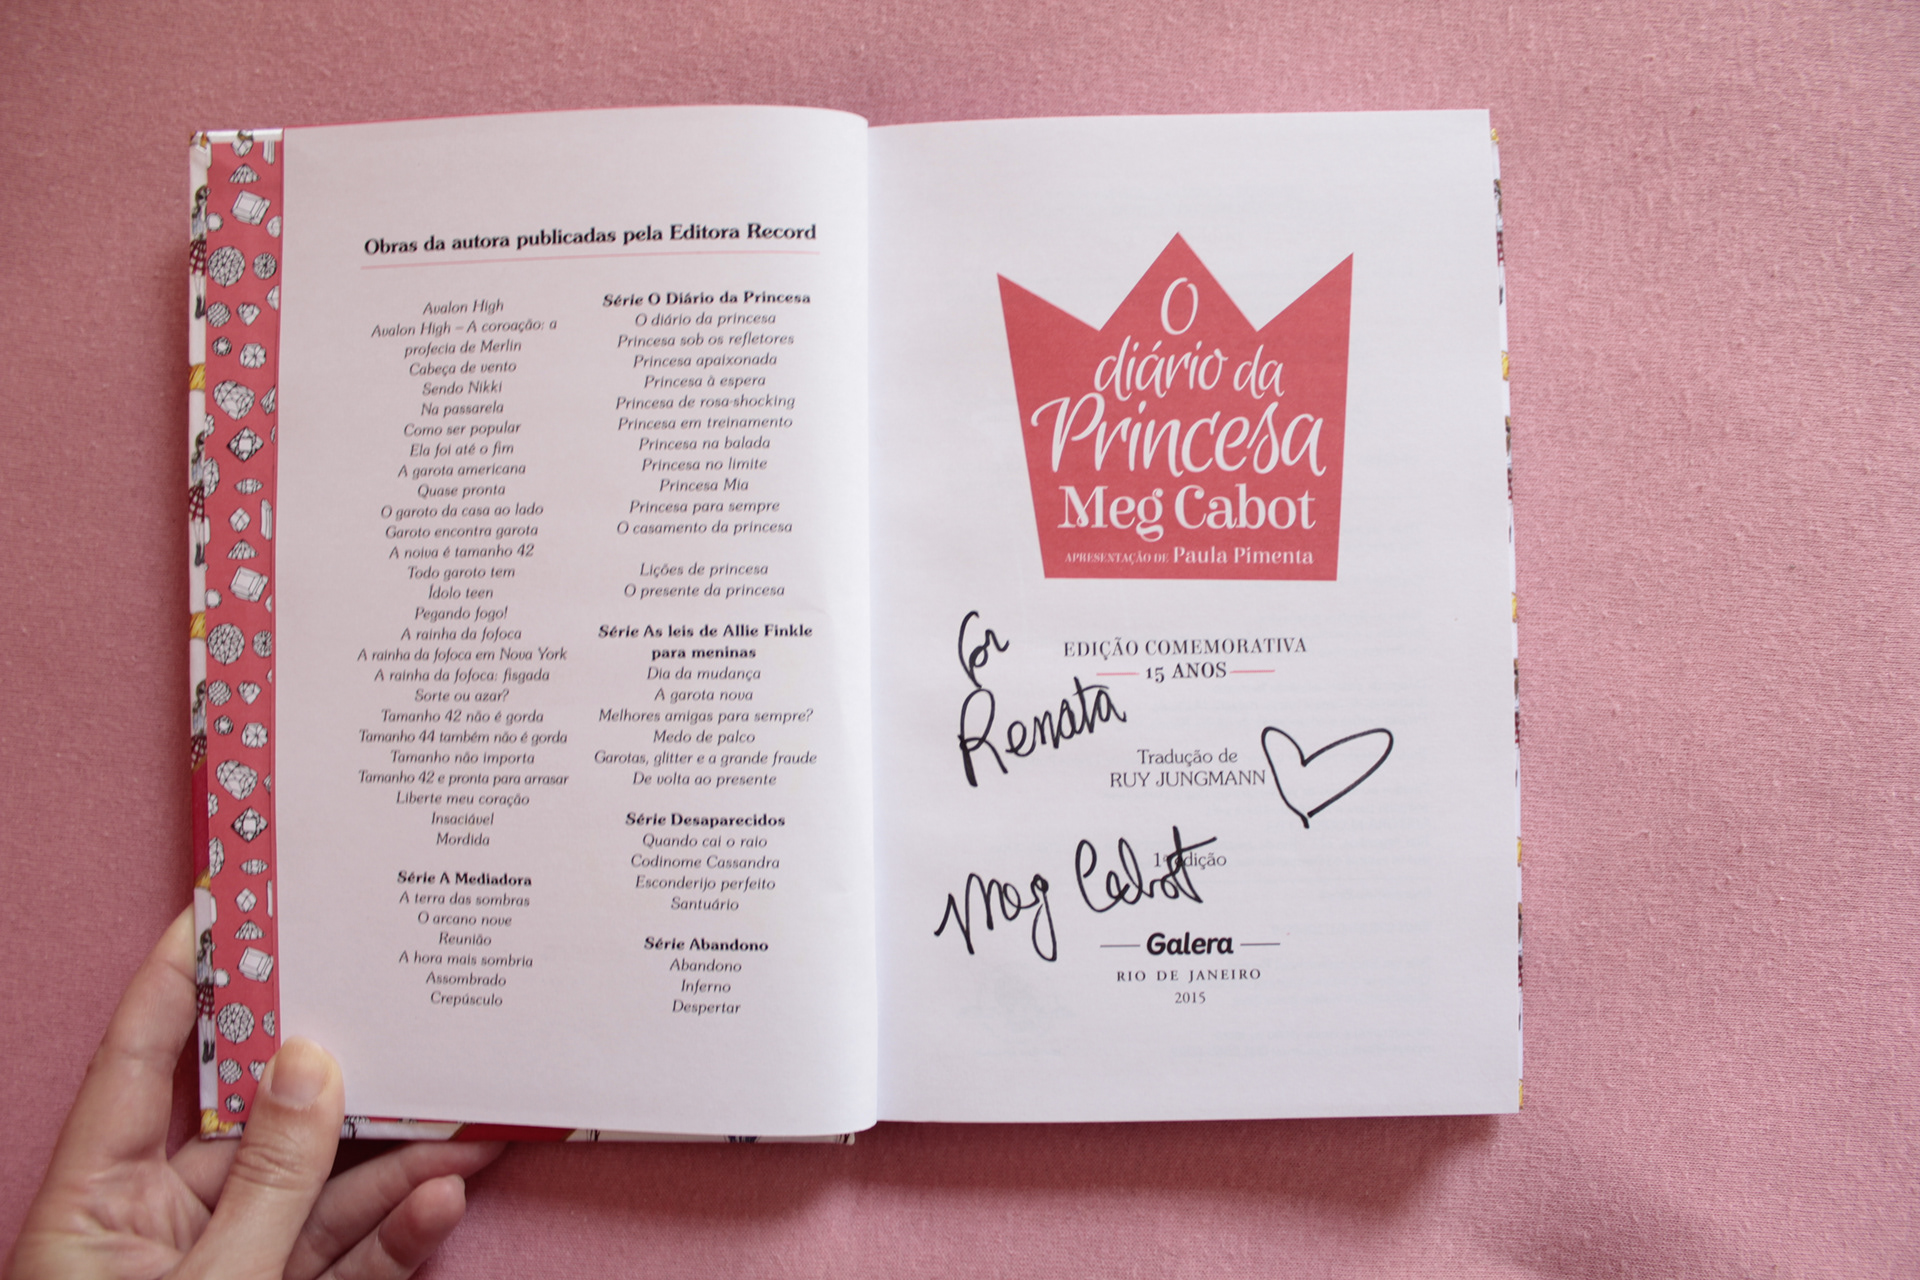 Obras da autora publicadas pela Editora Record
Avalon High
Avalon High – A coroação: a
profecia de Merlin
Cabeça de vento
Sendo Nikki
Na passarela
Como ser popular
Ela foi até o fim
A garota americana
Quase pronta
O garoto da casa ao lado
Garoto encontra garota
A noiva é tamanho 42
Todo garoto tem
Ídolo teen
Pegando fogo!
A rainha da fofoca
A rainha da fofoca em Nova York
A rainha da fofoca: fisgada
Sorte ou azar?
Tamanho 42 não é gorda
Tamanho 44 também não é gorda
Tamanho não importa
Tamanho 42 e pronta para arrasar
Liberte meu coração
Insaciável
Mordida
Série A Mediadora
A terra das sombras
O arcano nove
Reunião
A hora mais sombria
Assombrado
Crepúsculo
Série O Diário da Princesa
O diário da princesa
Princesa sob os refletores
Princesa apaixonada
Princesa à espera
Princesa de rosa-shocking
Princesa em treinamento
Princesa na balada
Princesa no limite
Princesa Mia
Princesa para sempre
O casamento da princesa
Lições de princesa
O presente da princesa
Série As leis de Allie Finkle
para meninas
Dia da mudança
A garota nova
Melhores amigas para sempre?
Medo de palco
Garotas, glitter e a grande fraude
De volta ao presente
Série Desaparecidos
Quando cai o raio
Codinome Cassandra
Esconderijo perfeito
Santuário
Série Abandono
Abandono
Inferno
Despertar
O
diário da
Princesa
Meg Cabot
APRESENTAÇÃO DE Paula Pimenta
for
EDIÇÃO COMEMORATIVA
15 ANOS
Renata
Tradução de
RUY JUNGMANN
1ª edição
Meg Cabot
Galera
RIO DE JANEIRO
2015